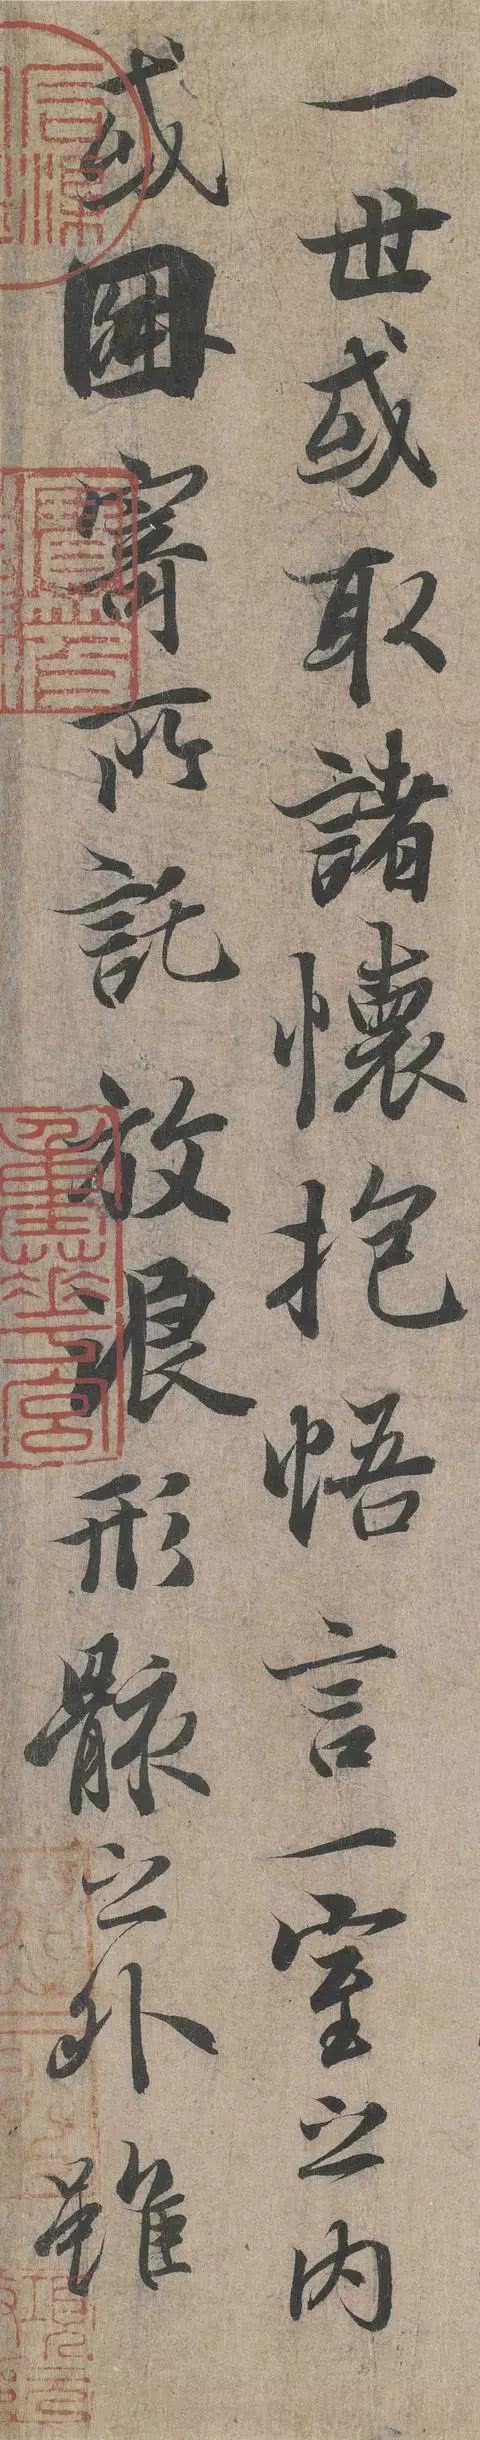 一世或取諸懷抱悟言一室之内
或因寄所託放浪形骸之外雖